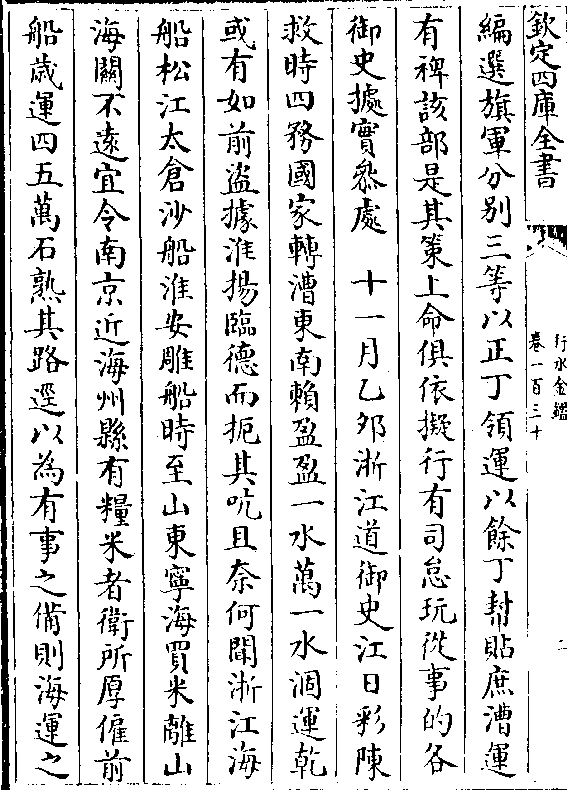 欽定四庫全書
行水金鑑
卷一百三十
二
編選旗軍分别三等以正丁領運以餘丁幇貼庶漕運
有裨該部是其策上命俱依擬行有司怠玩從事的各
御史據實叅處　十一月乙夘浙江道御史江日彩陳
救時四務國家轉漕東南賴盈盈一水萬一水涸運乾
或有如前盜據淮揚臨德而扼其吭且奈何聞浙江海
船松江太倉沙船淮安雕船時至山東寧海買米離山
海關不遠宜令南京近海州縣有糧米者衛所厚僱前
船歲運四五萬石熟其路逕以為有事之備則海運之